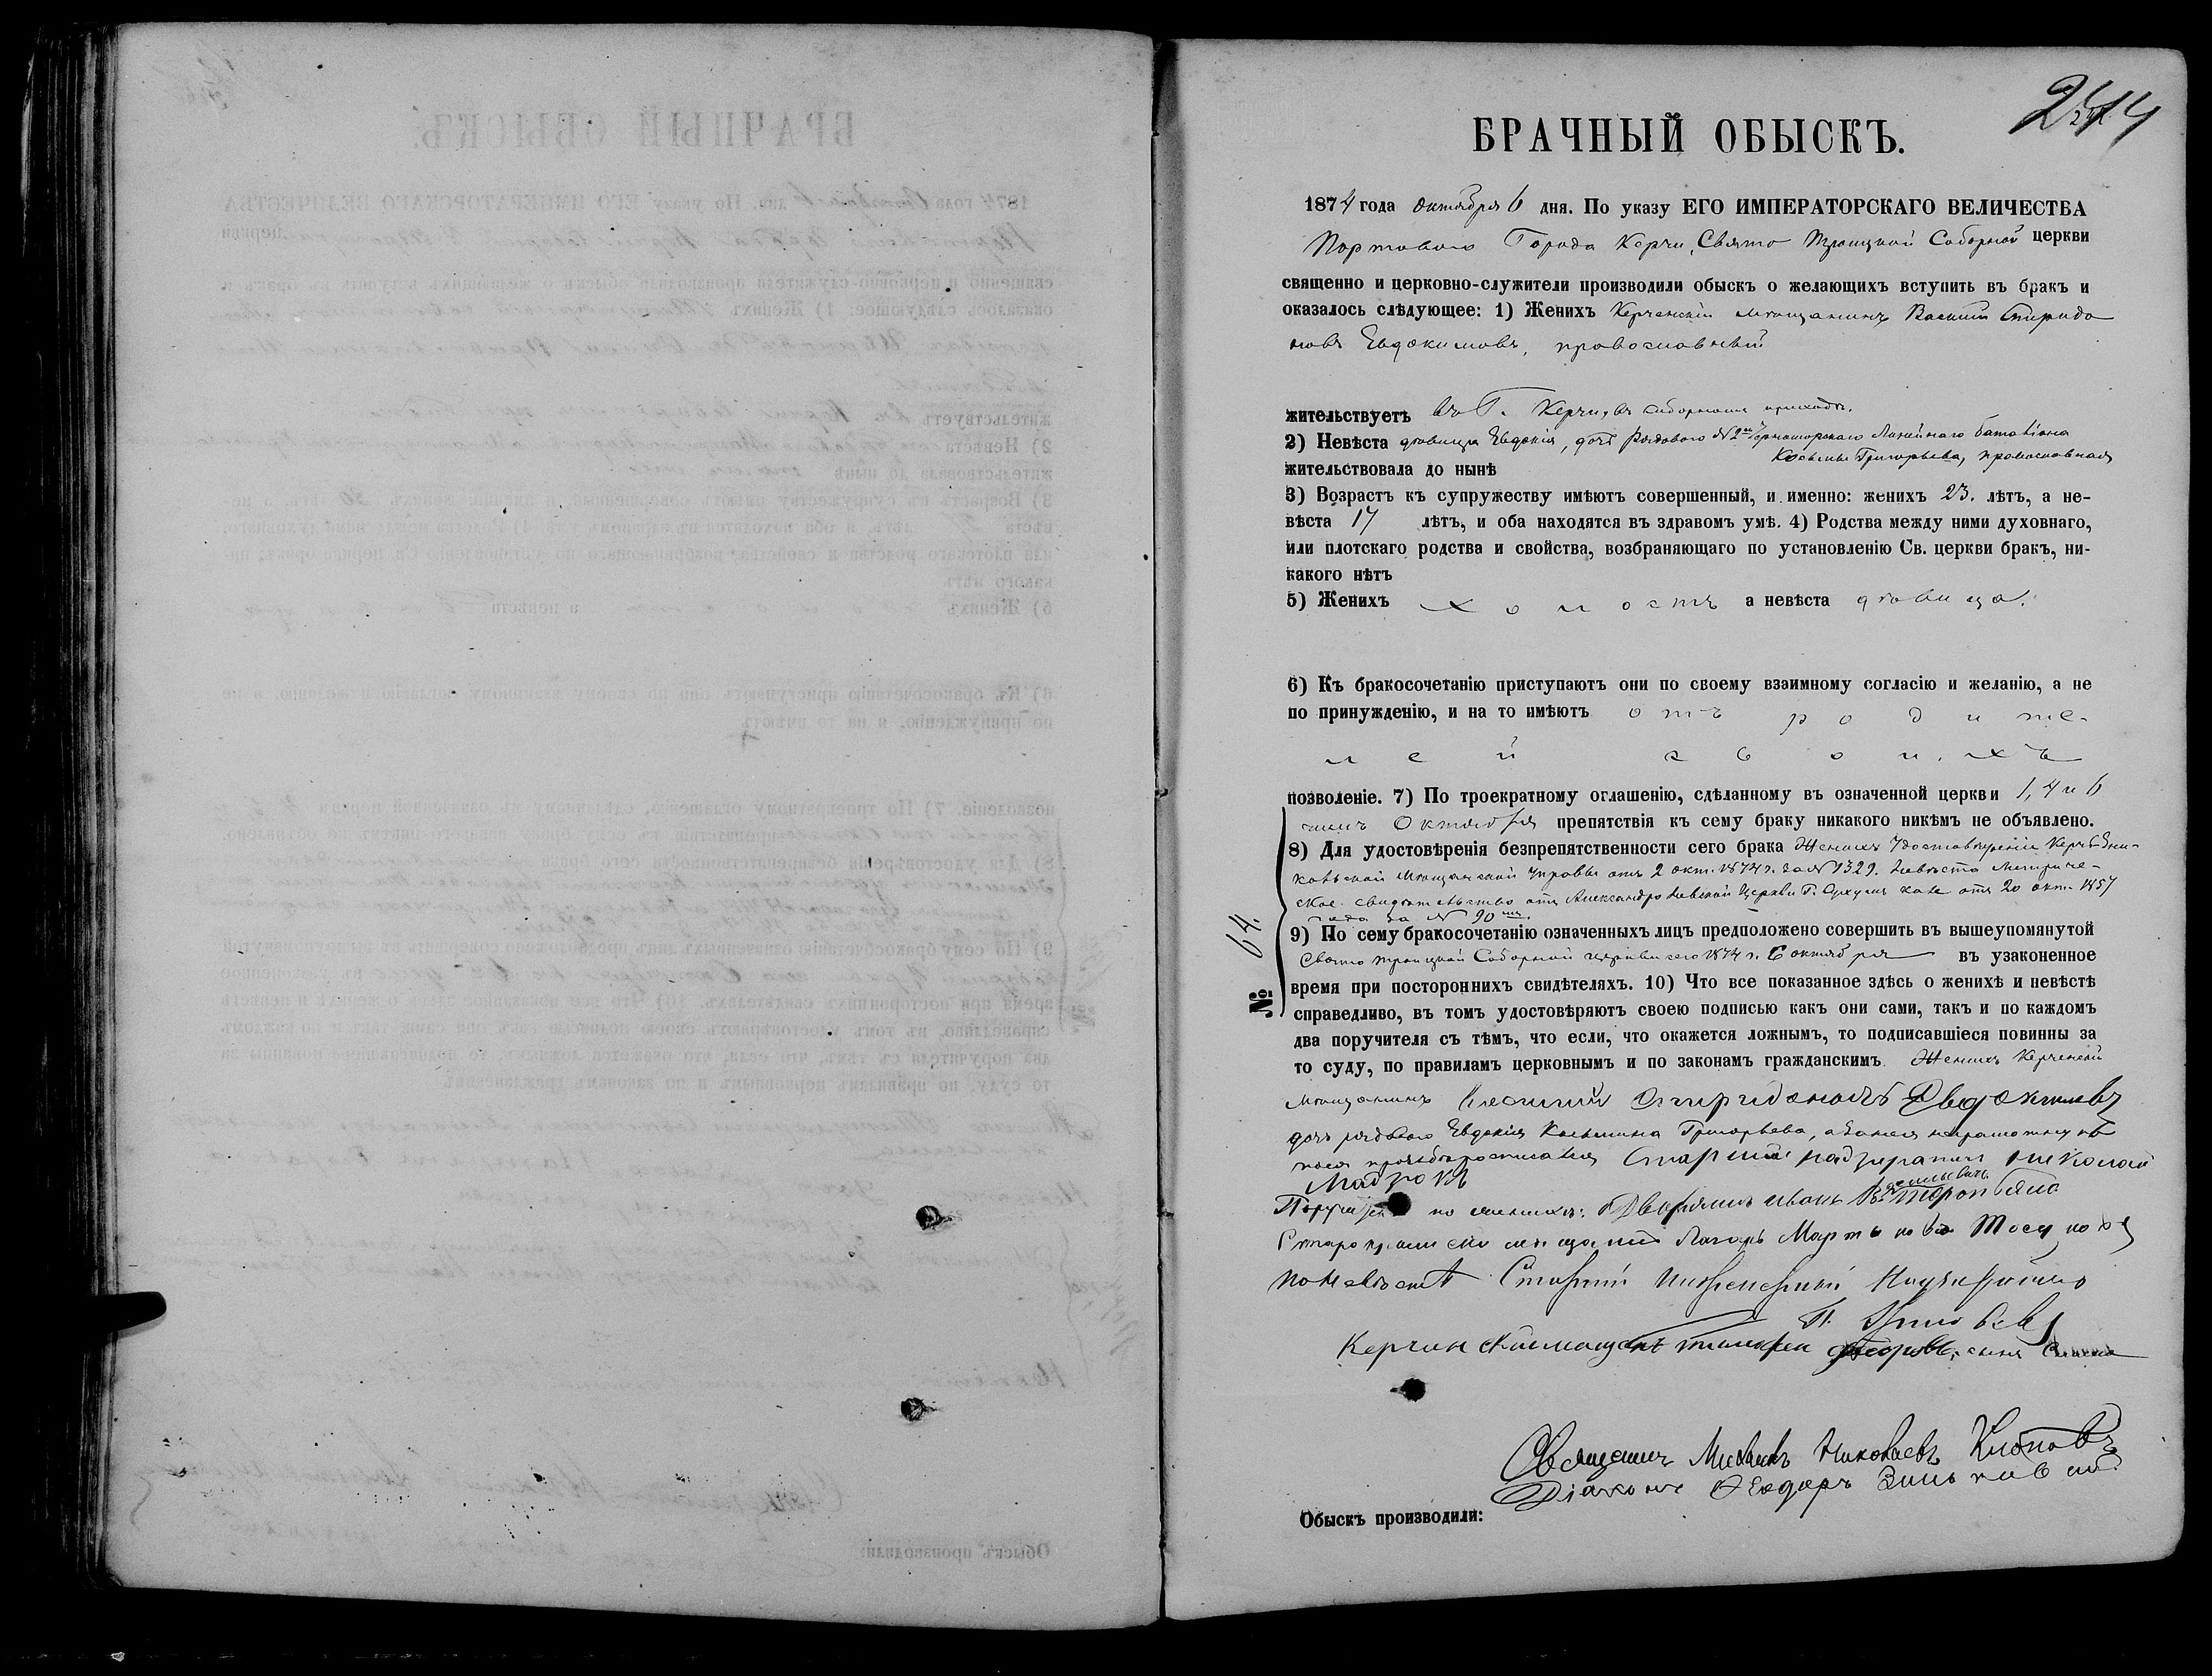 244
БРАЧНЫЙ ОБЫСКЪ.
1874 года октября 6 дня. По указу ЕГО ИМПЕРАТОРСКАГО ВЕЛИЧЕСТВА
Портоваго Города Керчи, Свято Троицкой Соборной церкви
священно и церковно-служители производили обыскъ о желающихъ вступить въ бракъ и
оказалось слѣдующее: 1) Женихъ Керченскій мѣщанинъ Василій Спиридо
новъ Евдокимовъ, православный
жительствуетъ въ Г. Керчи, въ соборномъ приходѣ.
2) Невѣста дѣвица Евдокія, дочь рядового №2го Черноморскаго Линейнаго баталіона
Козьмы Григорьева, православная
жительствовала до нынѣ
3) Возрастъ къ супружеству имѣютъ совершенный, и именно: женихъ 23. лѣтъ, а не-
вѣста 17 лѣтъ, и оба находятся въ здравомъ умѣ. 4) Родства между ними духовнаго,
или плотскаго родства и свойства, возбраняющаго по установленію Св. церкви бракъ, ни-
какого нѣтъ
5) Женихъ холостъ а невѣста дѣвица.
6) Къ бракосочетанію приступаютъ они по своему взаимному согласію и желанію, а не
по принужденію, и на то имѣютъ отъ родите-
лей своихъ
позволеніе. 7) По троекратному оглашенію, сдѣланному въ означенной церкви 1, 4 и 6
чиселъ Октября препятствія къ сему браку никакого никѣмъ не объявлено.
8) Для удостовѣренія безпрепятственности сего брака Женихъ Удостовѣреніе Керчь-Ени-
кольской Мѣщанской Управы отъ 2 окт. 1874 г. за №1329. Невѣста Метриче-
ское свидѣтельство отъ Александро Невской Церкви Г. отъ 20 окт. 1857
года за № 90мъ.
9) По сему бракосочетанію означенныхъ лицъ предположено совершить въ вышеупомянутой
Свято Троицкой Соборной церкви сего 1874 г. 6 октября въ узаконенное
время при постороннихъ свидѣтеляхъ. 10) Что все показанное здѣсь о женихѣ и невѣстѣ
справедливо, въ томъ удостовѣряютъ своею подписью какъ они сами, такъ и по каждомъ
два поручителя съ тѣмъ, что если, что окажется ложнымъ, то подписавшіеся повинны за
то суду, по правиламъ церковнымъ и по законамъ гражданскимъ. Женихъ Керченскій
мѣщанинъ Василий Спиридоновъ Евдокимовъ
дочь рядового Евдокія Козьмина Григорьева, а за нея неграмотную по
Старшій надзиратель Николай
по женихѣ: Дворянинъ Иванъ
мѣщанинъ Лазарь
по невѣстѣ Старшій
Священникъ Михаилъ Николаевъ Клоповъ
Діаконъ Ѳеодоръ Зиньковскій
Обыскъ производили:
№ 64.